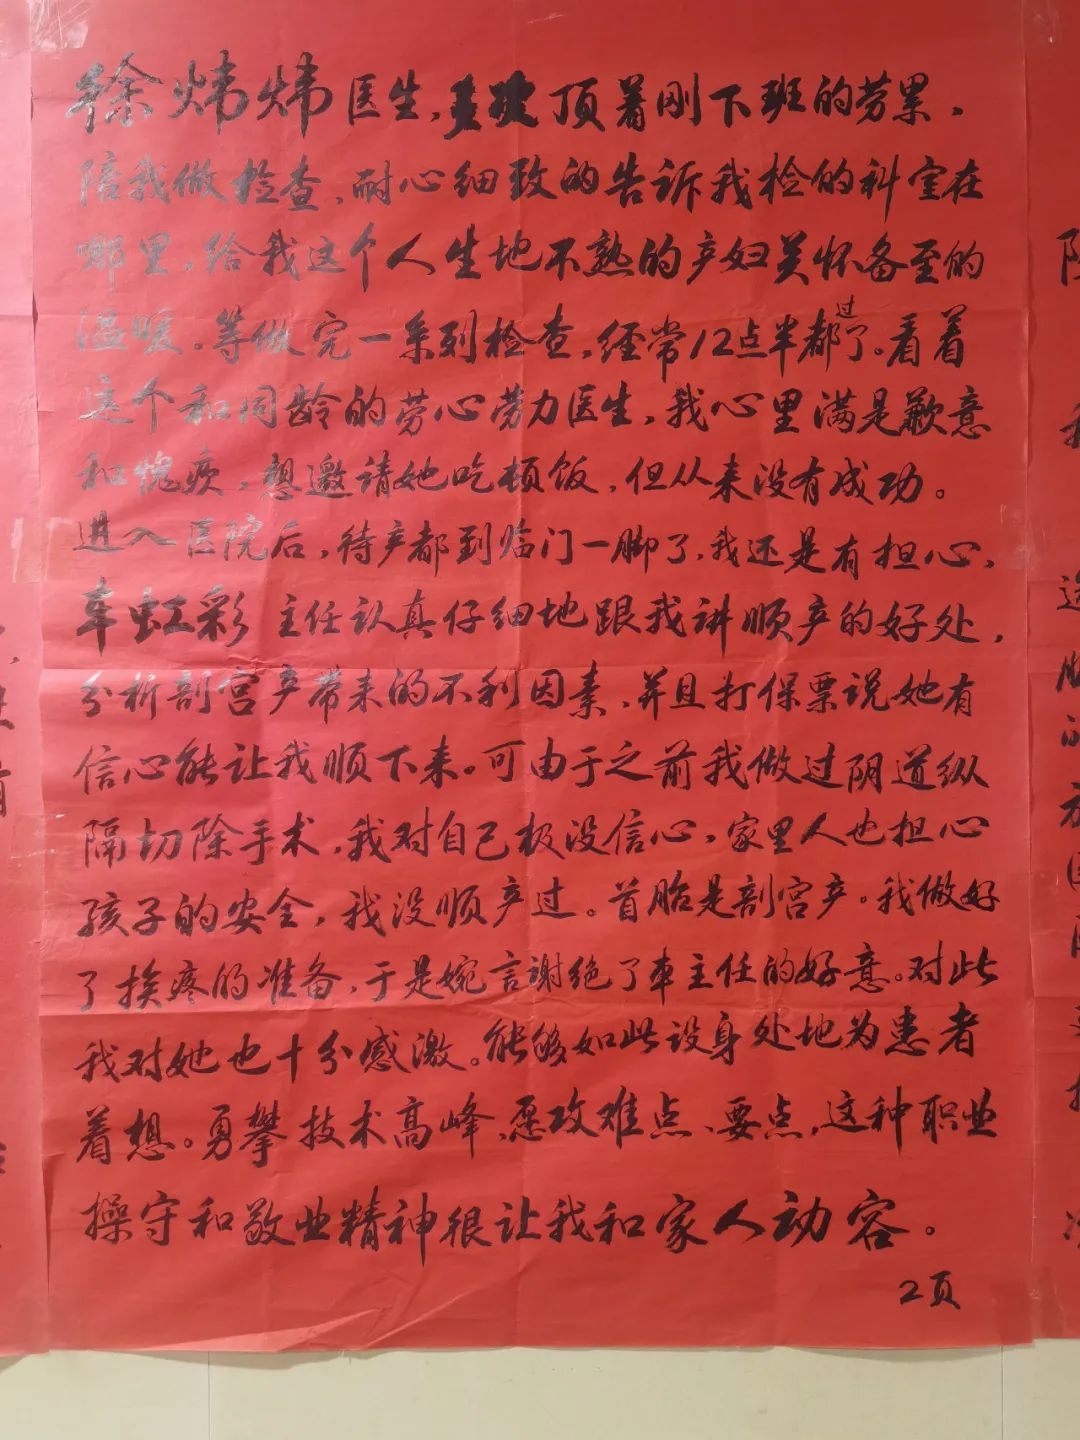 徐炜炜医生，多次顶着刚下班的劳累，
陪我做检查，耐心细致的告诉我检的科室在
哪里，给我这个人生地不熟的产妇关怀备至的
温暖。等做完一系列检查，经常12点半都过了。看着
这个和同龄的劳心劳力医生，我心里满是歉意
和愧疚，想邀请她吃顿饭，但从来没有成功。
进入医院后，待产都到临门一脚了，我还是有担心，
车虹彩主任认真仔细地跟我讲顺产的好处，
分析剖宫产带来的不利因素，并且打保票说她有
信心能让我顺下来。可由于之前我做过阴道纵
隔切除手术，我对自己极没信心，家里人也担心
孩子的安全，我没顺产过。首胎是剖宫产。我做好
了挨疼的准备，于是婉言谢绝了车主任的好意。对此
我对她也十分感激。能够如此设身处地为患者
着想。勇攀技术高峰、愿攻难点、要点，这种职业
操守和敬业精神很让我和家人动容。
2页